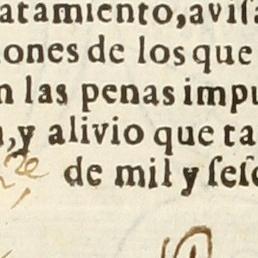 atamiento, avisa
iones de los que
n las penas impu
, y alivio que ta
de mil y sesc